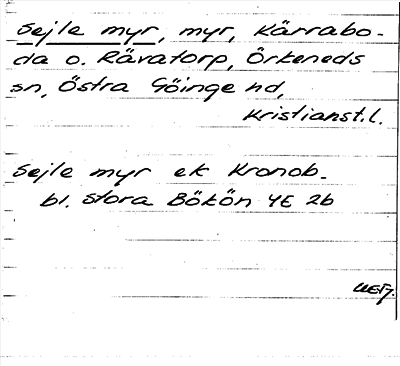 Sejle myr, myr, Kärrabo-
da o. Rävatorp, Örkeneds
sn, Östra Göinge hd,
Kristianst.l.
Sejle myr ek Kronob.
bl. Stora Bökön 4E 2b